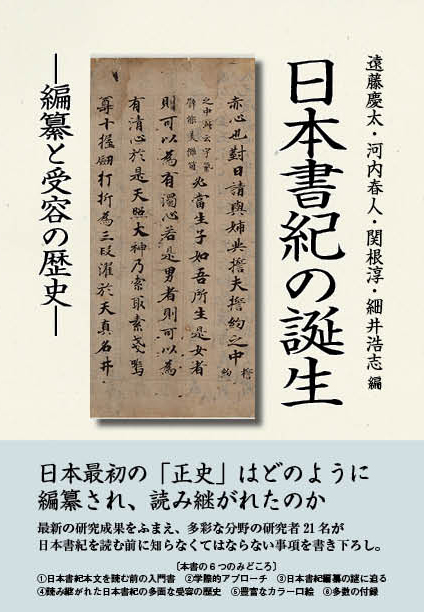 遠藤慶太・河内春人・関根淳・細井浩志 編
日本書紀の誕生
―編纂と受容の歴史―
赤心也對曰請與姉共誓夫誓約之中 誓約
之中此云宇氣譬能美儺箇 必當生子如吾所生是女者
則可以為有濁心若是男者則可以為
有清心於是天照大神乃索取素戔嗚
尊十握劔打折為三段濯於天真名井
日本最初の「正史」はどのように
編纂され、読み継がれたのか
最新の研究成果をふまえ、多彩な分野の研究者21名が
日本書紀を読む前に知らなくてはならない事項を書き下ろし。
〔本書の6つのみどころ〕
①日本書紀本文を読む前の入門書 ②学際的アプローチ ③日本書紀編纂の謎に迫る
④読み継がれた日本書紀の多面な受容の歴史 ⑤豊富なカラー口絵 ⑥多数の付録